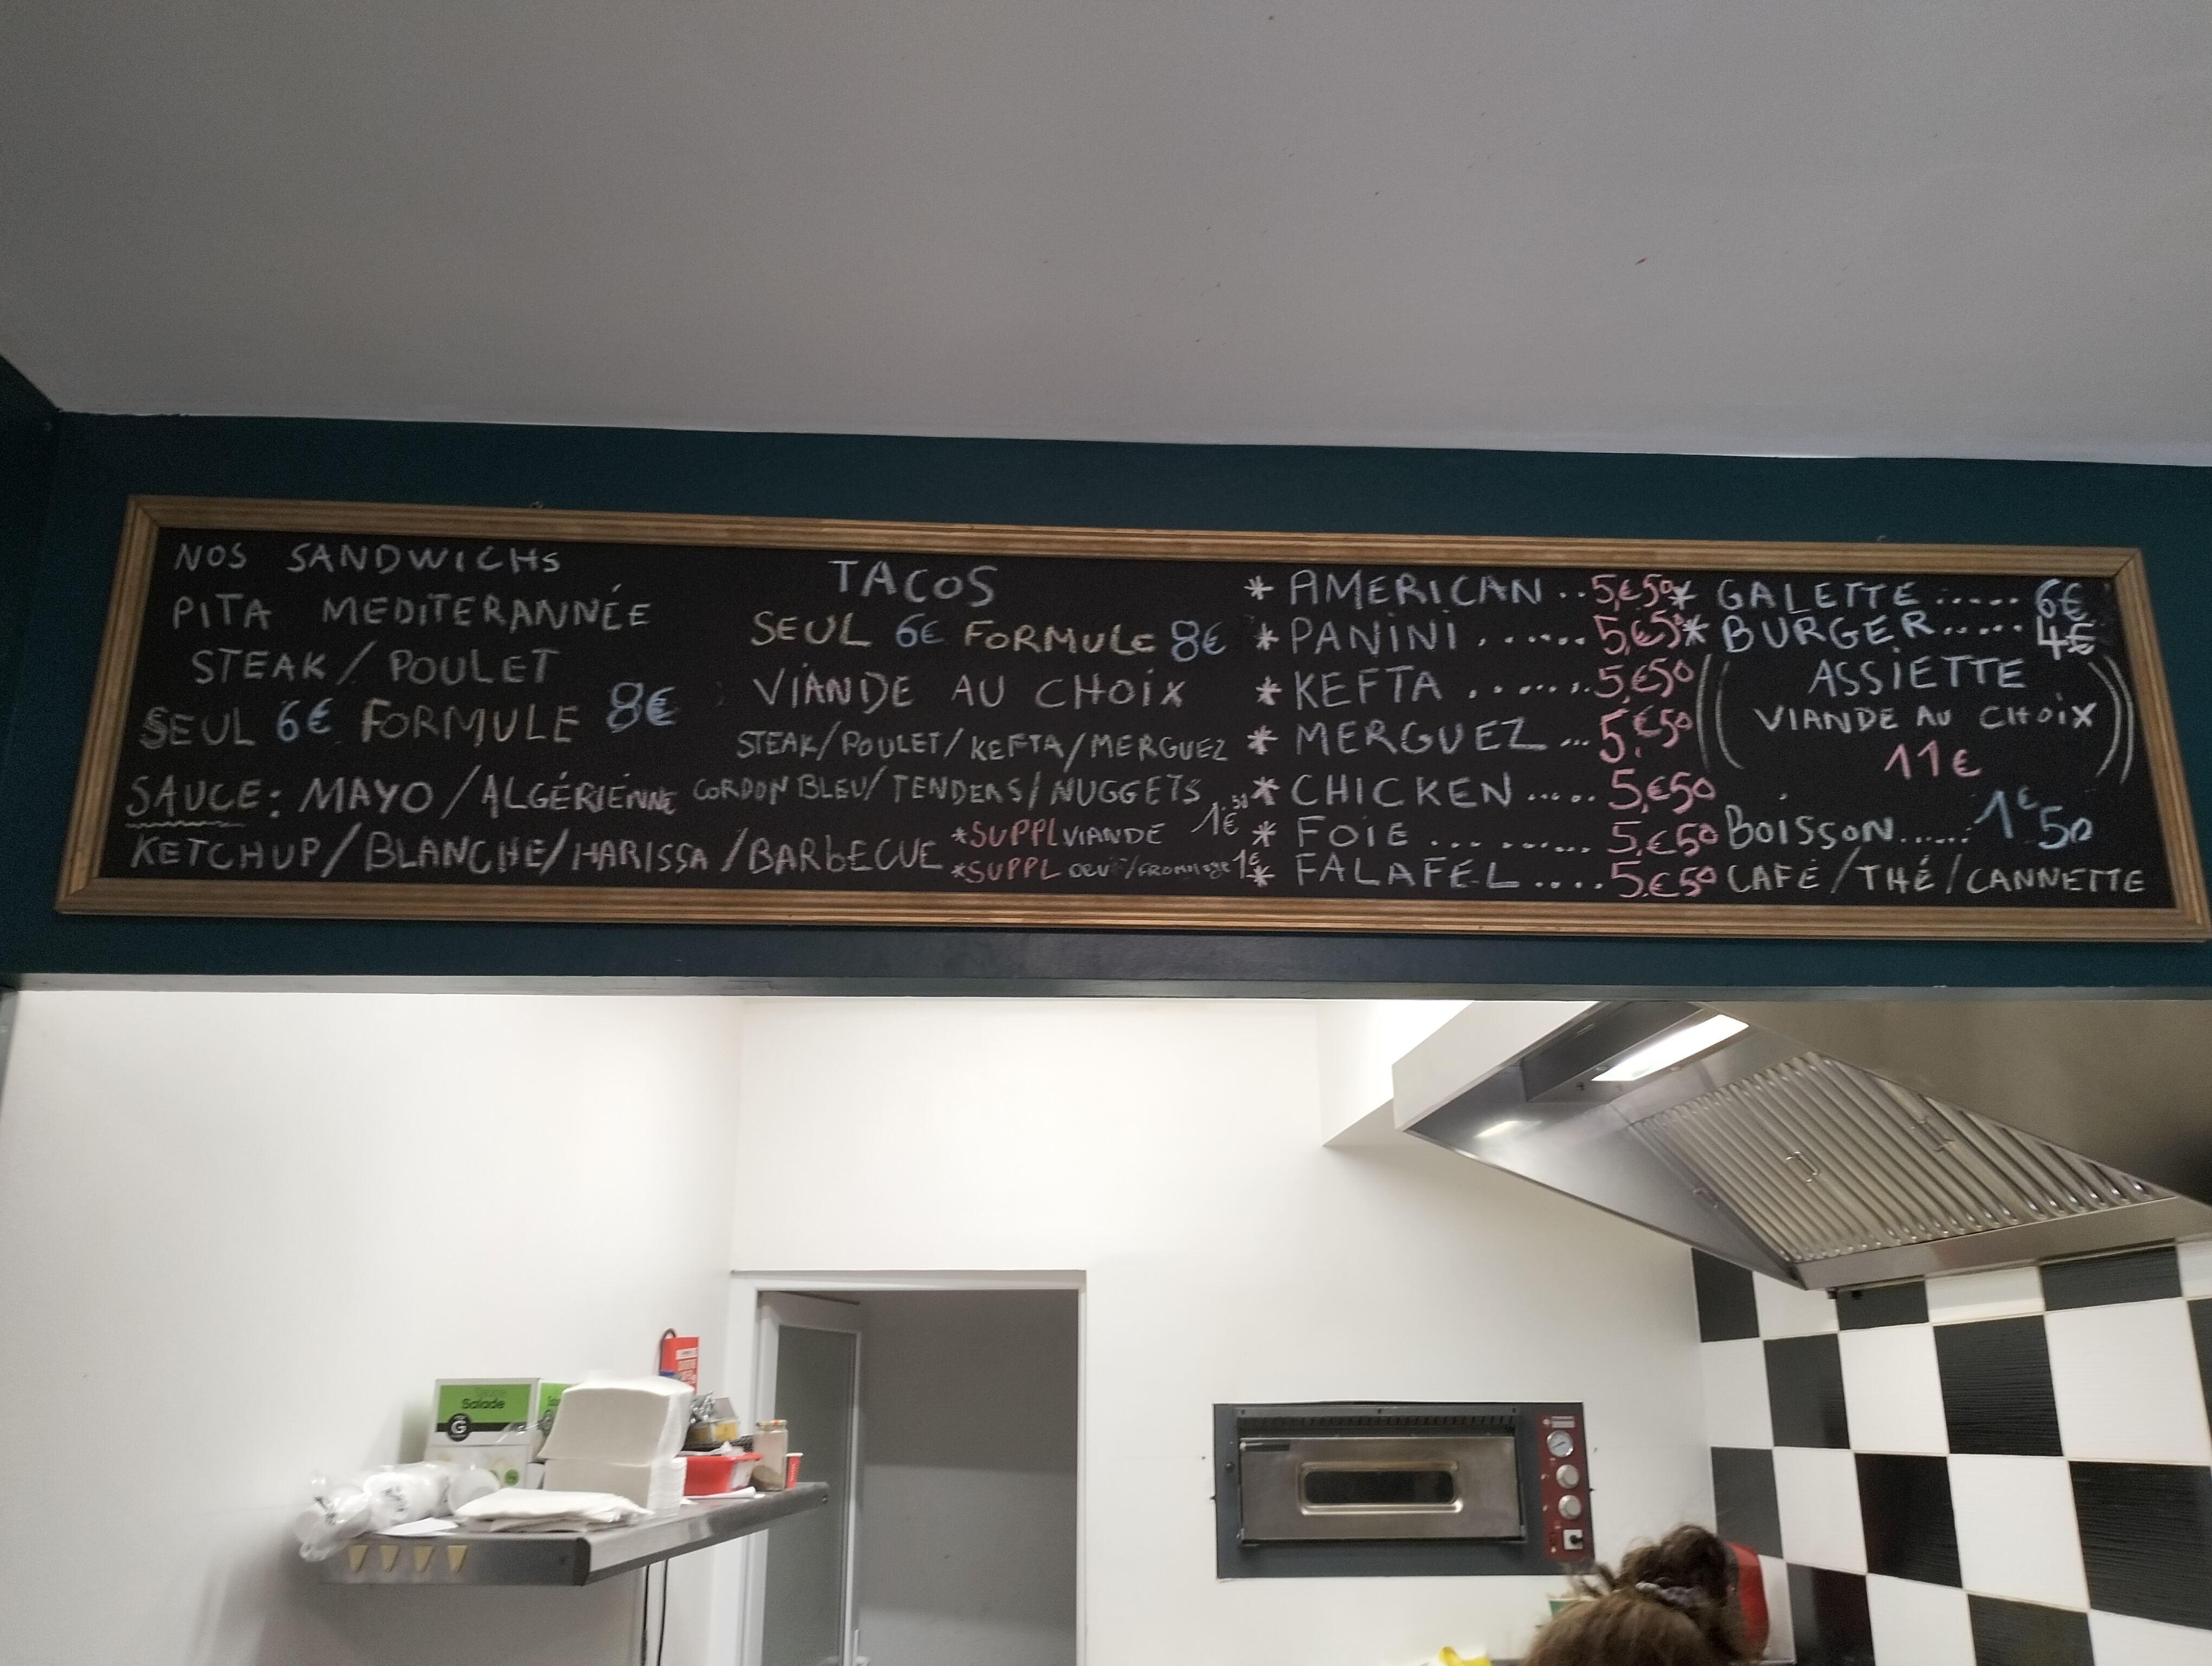 NOS SANDWICHS
PITA MEDITERANNÉE
STEAK / POULET
SEUL 6€ FORMULE 8€
SAUCE: MAYO / ALGÉRIENNE
KETCHUP / BLANCHE / HARISSA / BARBECUE
TACOS
SEUL 6€ FORMULE 8€
VIANDE AU CHOIX
STEAK / POULET / KEFTA / MERGUEZ
CORDON BLEU / TENDERS / NUGGETS
*SUPPL VIANDE 1€.50
*SUPPL OEUF / FROMAGE 1€
* AMERICAN .. 5,€50
* PANINI ...... 5,€50
* KEFTA ....... 5,€50
* MERGUEZ ... 5,€50
* CHICKEN ..... 5,€50
* FOIE ......... 5,€50
* FALAFEL .... 5,€50
* GALETTE ..... 6€
* BURGER ..... 4€
ASSIETTE
VIANDE AU CHOIX
11€
BOISSON ...... 1€50
CAFÉ / THÉ / CANNETTE
Sauce
Salade
G